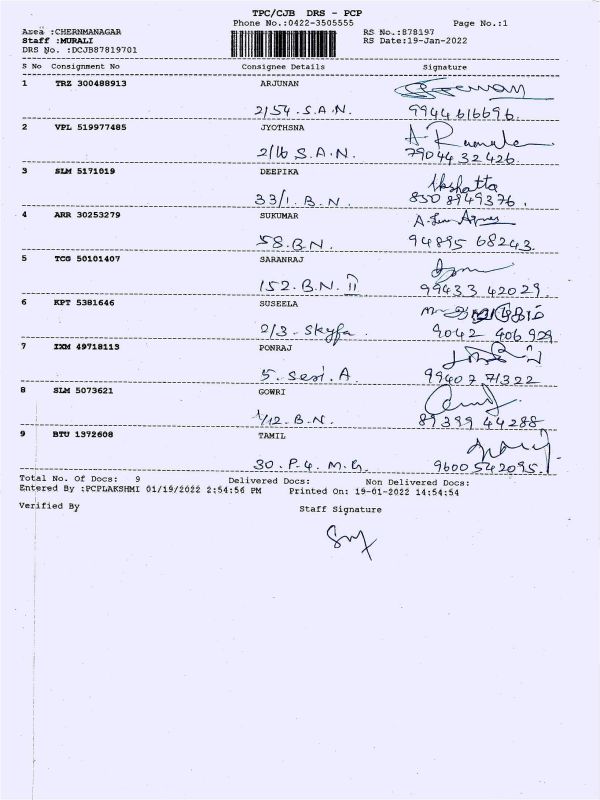 TPC/CJB DRS - PCP
Phone No.:0422-3505555 Page No.:1
Area :CHERNMANAGAR RS No.:878197
Staff :MURALI RS Date:19-Jan-2022
DRS No. :DCJB87819701
S No Consignment No Consignee Details Signature
1 TRZ 300488913 ARJUNAN
2/54. S.A.N. 9944616696.
2 VPL 519977485 JYOTHSNA
2/16 S.A.N. 79044 32426.
3 SLM 5171019 DEEPIKA Akshatta
33/1. B.N. 8508949376.
4 ARR 30253279 SUKUMAR
58. B.N. 94895 68243.
5 TCG 50101407 SARANRAJ
152. B.N. II 99433 42029.
6 KPT 5381646 SUSEELA
2/3- Skyfa. 9042 406 929
7 IXM 49718113 PONRAJ
5. Sesi. A 99407 71322
8 SLM 5073621 GOWRI
1/12. B.N. 89399 44288
9 BTU 1372608 TAMIL
30. P.4. M.G. 9600542095
Total No. Of Docs: 9 Delivered Docs: Non Delivered Docs:
Entered By :PCPLAKSHMI 01/19/2022 2:54:56 PM Printed On: 19-01-2022 14:54:54
Verified By Staff Signature